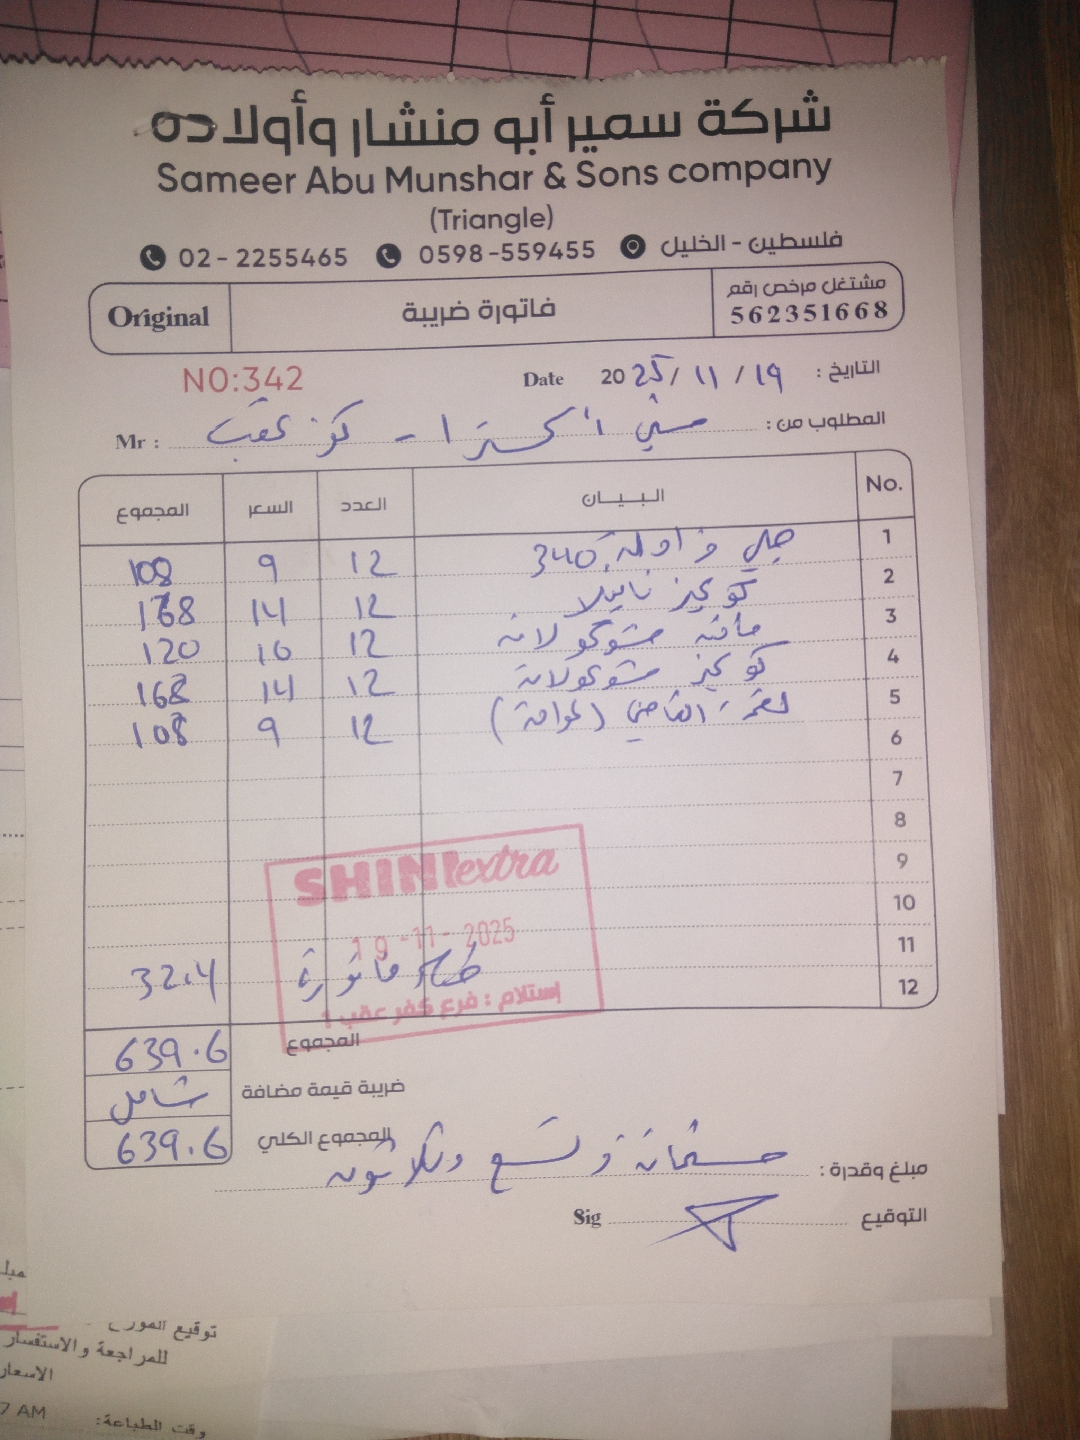 شركة سمير أبو منشار وأولاده
Sameer Abu Munshar & Sons company
(Triangle)
02 - 2255465 0598 -559455 فلسطين - الخليل
Original فاتورة ضريبة مشتغل مرخص رقم
562351668
NO:342 Date 2025/11/19 التاريخ :
المطلوب من: شني اكسترا - كفر عقب Mr :
No. البيان العدد السعر المجموع
1 340 12 9 108
2 كوكيز نوتيلا 12 14 168
3 مافن شوكولاته 12 10 120
4 كوكيز شوكولاتة 12 14 168
5 لقمة القاضي (عوامة) 12 9 108
6
7
8
SHINI extra
9
10
19-11-2025
11
خصم فاتورة 32.4
12
إستلام : فرع كفر عقب 1
المجموع 639.6
ضريبة قيمة مضافة شامل
المجموع الكلي 639.6
مبلغ وقدرة : ستمائة و تسع وثلاثون
التوقيع Sig
توقيع المورد
للمراجعة والاستفسار
الاسعار
7 AM وقت الطباعة: